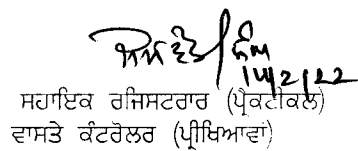 14/2/22
ਸਹਾਇਕ ਰਜਿਸਟਰਾਰ (ਪ੍ਰੈਕਟੀਕਲ)
ਵਾਸਤੇ ਕੰਟਰੋਲਰ (ਪ੍ਰੀਖਿਆਵਾਂ)